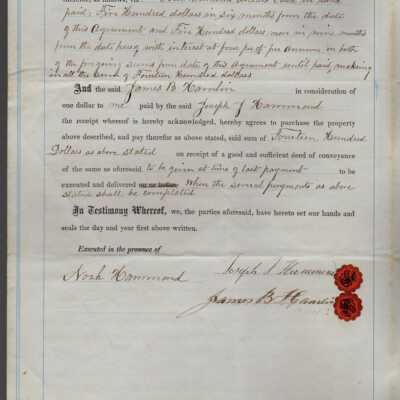 paid; Five Hundred dollars in six months from the date
of this Agreement and Five Hundred dollars more in nine months
from the date hereof with interest at four per ct per Annum in both
of the foregoing sums from date of this Agreement until paid, making
in all the sum of Fourteen Hundred dollars
And the said James B Hamlin in consideration of
one dollar to me paid by the said Joseph J Hammond
the receipt whereof is hereby acknowledged, hereby agrees to purchase the property
above described, and pay therefor as above stated, said sum of Fourteen Hundred
Dollars as above stated on receipt of a good and sufficient deed of conveyance
of the same as aforesaid to be given at time of last payment to be
executed and delivered on or before When the several payments as above
stated shall be completed
In Testimony Whereof, we, the parties aforesaid, have hereto set our hands and
seals the day and year first above written.
Executed in the presence of
Noah Hammond
Joseph J Hammond
James B Hamlin